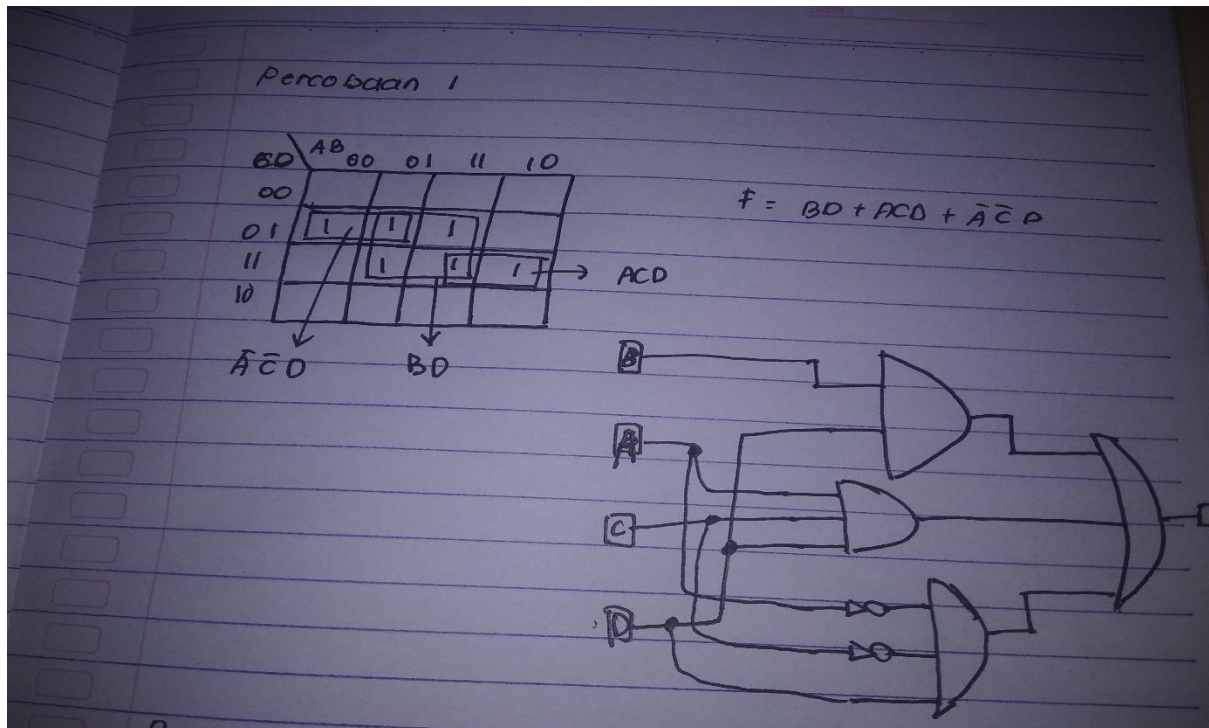 Percobaan 1
AB 00 01 11 10
00
01 1 1 1
11 1 1 1
10
ACD
Ā C̄ D BD
F = BD + ACD + Ā C̄ D
B
A
C
D